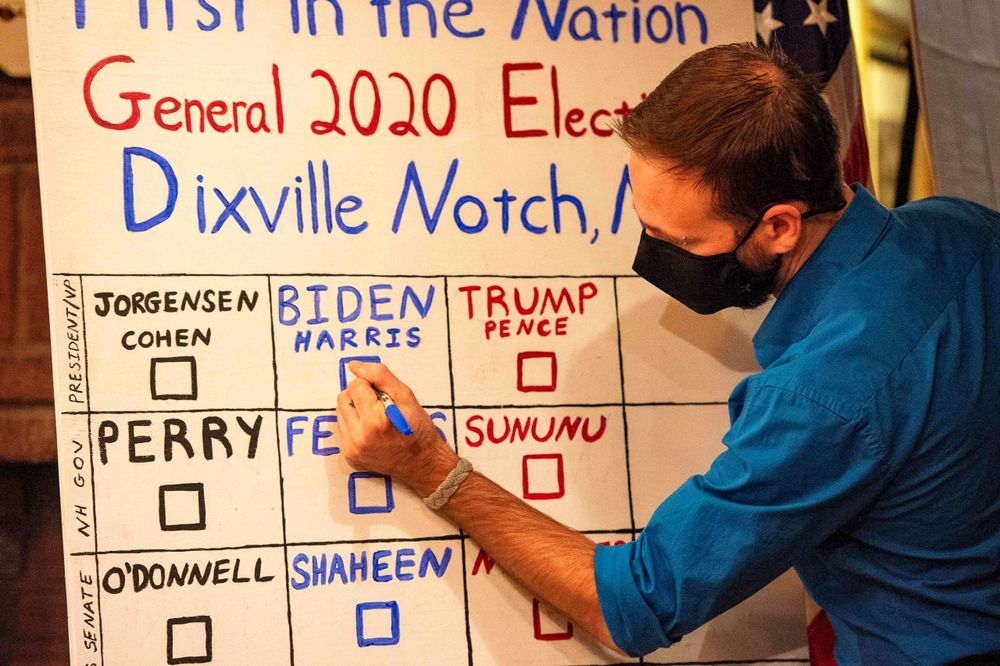 First in the Nation
General 2020 Elect
Dixville Notch, N
PRESIDENT/VP
JORGENSEN
COHEN
BIDEN
HARRIS
TRUMP
PENCE
NH GOV
PERRY
SUNUNU
S SENATE
O'DONNELL
SHAHEEN